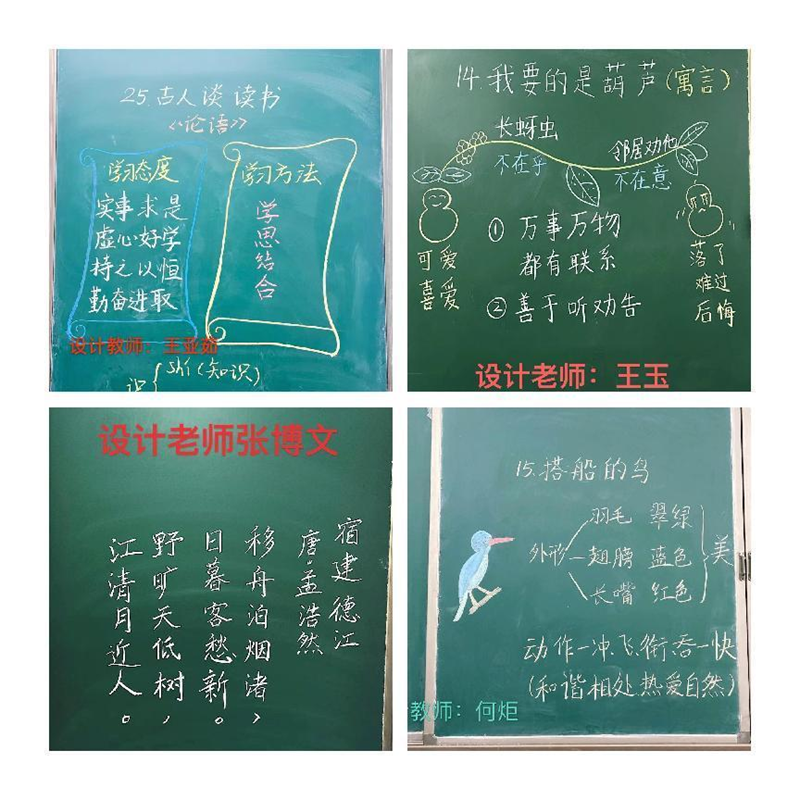 25.古人谈读书
《论语》
学习态度
实事求是
虚心好学
持之以恒
勤奋进取
学习方法
学思结合
设计教师：王亚茹
识{shí(知识)
14.我要的是葫芦(寓言)
长蚜虫
不在乎
邻居劝他
不在意
可爱
喜爱
①万事万物
都有联系
②善于听劝告
落了
难过
后悔
设计老师：王玉
设计老师张博文
宿建德江
唐·孟浩然
移舟泊烟渚，
日暮客愁新。
野旷天低树，
江清月近人。
15.搭船的鸟
外形
羽毛 翠绿
翅膀 蓝色
长嘴 红色
美
动作—冲、飞、衔、吞—快
(和谐相处、热爱自然)
教师：何炬